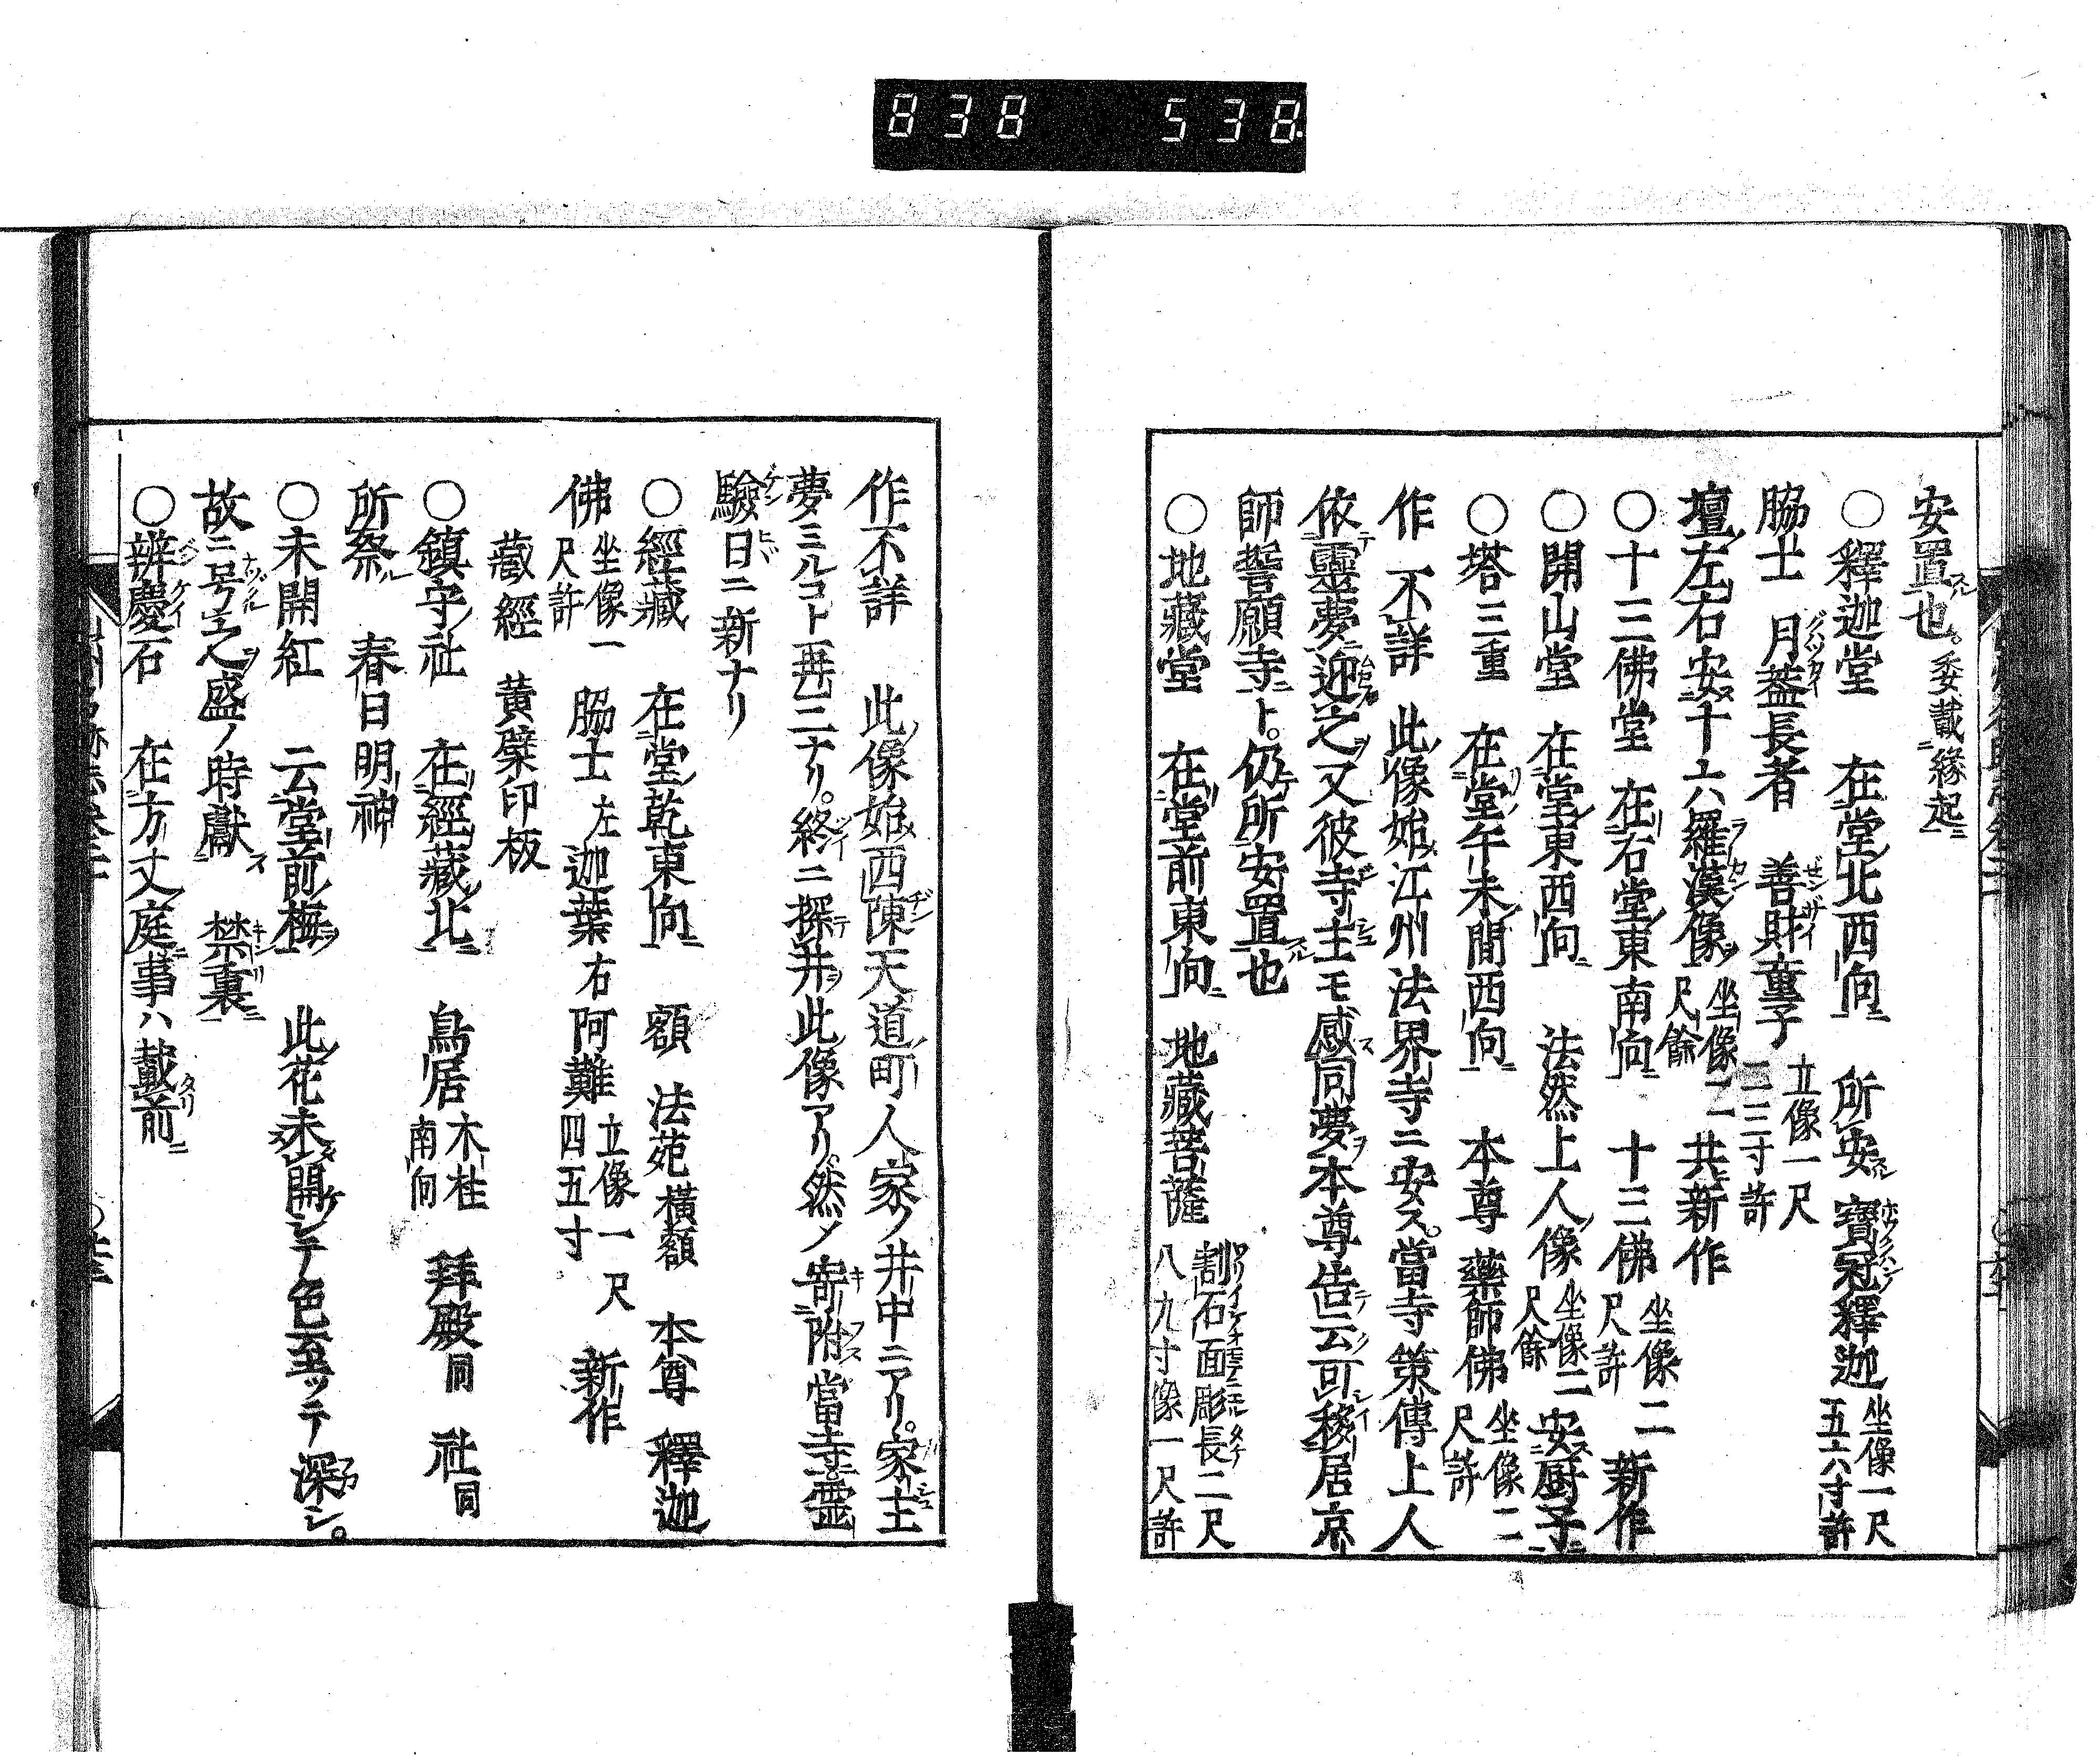 838 538
安置スル也。委載縁起ニ
○釋迦堂 在堂北西向 所安スル寶冠釋迦 坐像一尺五六寸許
脇士 月蓋長者 善財童子 立像一尺二三寸許
壇ノ左右安ス十六羅漢像ヲ 坐像二尺餘 共ニ新作
○十三佛堂 在右堂ノ東南向 十三佛 坐像二尺許 新作
○開山堂 在堂ノ東西向 法然上人ノ像 坐像二尺餘 安ス厨子ニ
○塔三重 在堂ノ午未ノ間西向 本尊 藥師佛 坐像二尺許
作不詳 此ノ像始メ江州法界寺ニ安ス。當寺策傳上人
依テ靈夢ニ迎之ヲ又彼寺主モ感ス同夢ヲ本尊告テ云ク可シ移リ居京
師誓願寺ニト。仍テ所安置スル也
○地藏堂 在堂ノ前東向 地藏菩薩 割石面彫長二尺八九寸像一尺許
作不詳 此ノ像始メ西陳天道ノ町人家ノ井中ニアリ。家主
夢ミルコト再三ナリ。終ニ探テ井ヲ此像アリ。然ノ寄附ス當寺ニ霊
驗日ニ新ナリ
○經藏 在堂ノ乾東向 額 法苑横額 本尊 釋迦
佛 坐像一尺許 脇士 左迦葉右阿難 立像一尺四五寸 新作
藏經 黄檗印板
○鎮守ノ社 在リ經藏ノ北ニ 鳥居 木柱南向 拜殿同 社同
所祭ル 春日明神
○未開紅 云堂前ノ梅ヲ 此ノ花未タ開ケシテ色至ッテ深シ。
故ニ号之ヲ盛ノ時獻ス 禁裏ニ
○辨慶石 在方丈ノ庭ニ事ハ載タリ前ニ